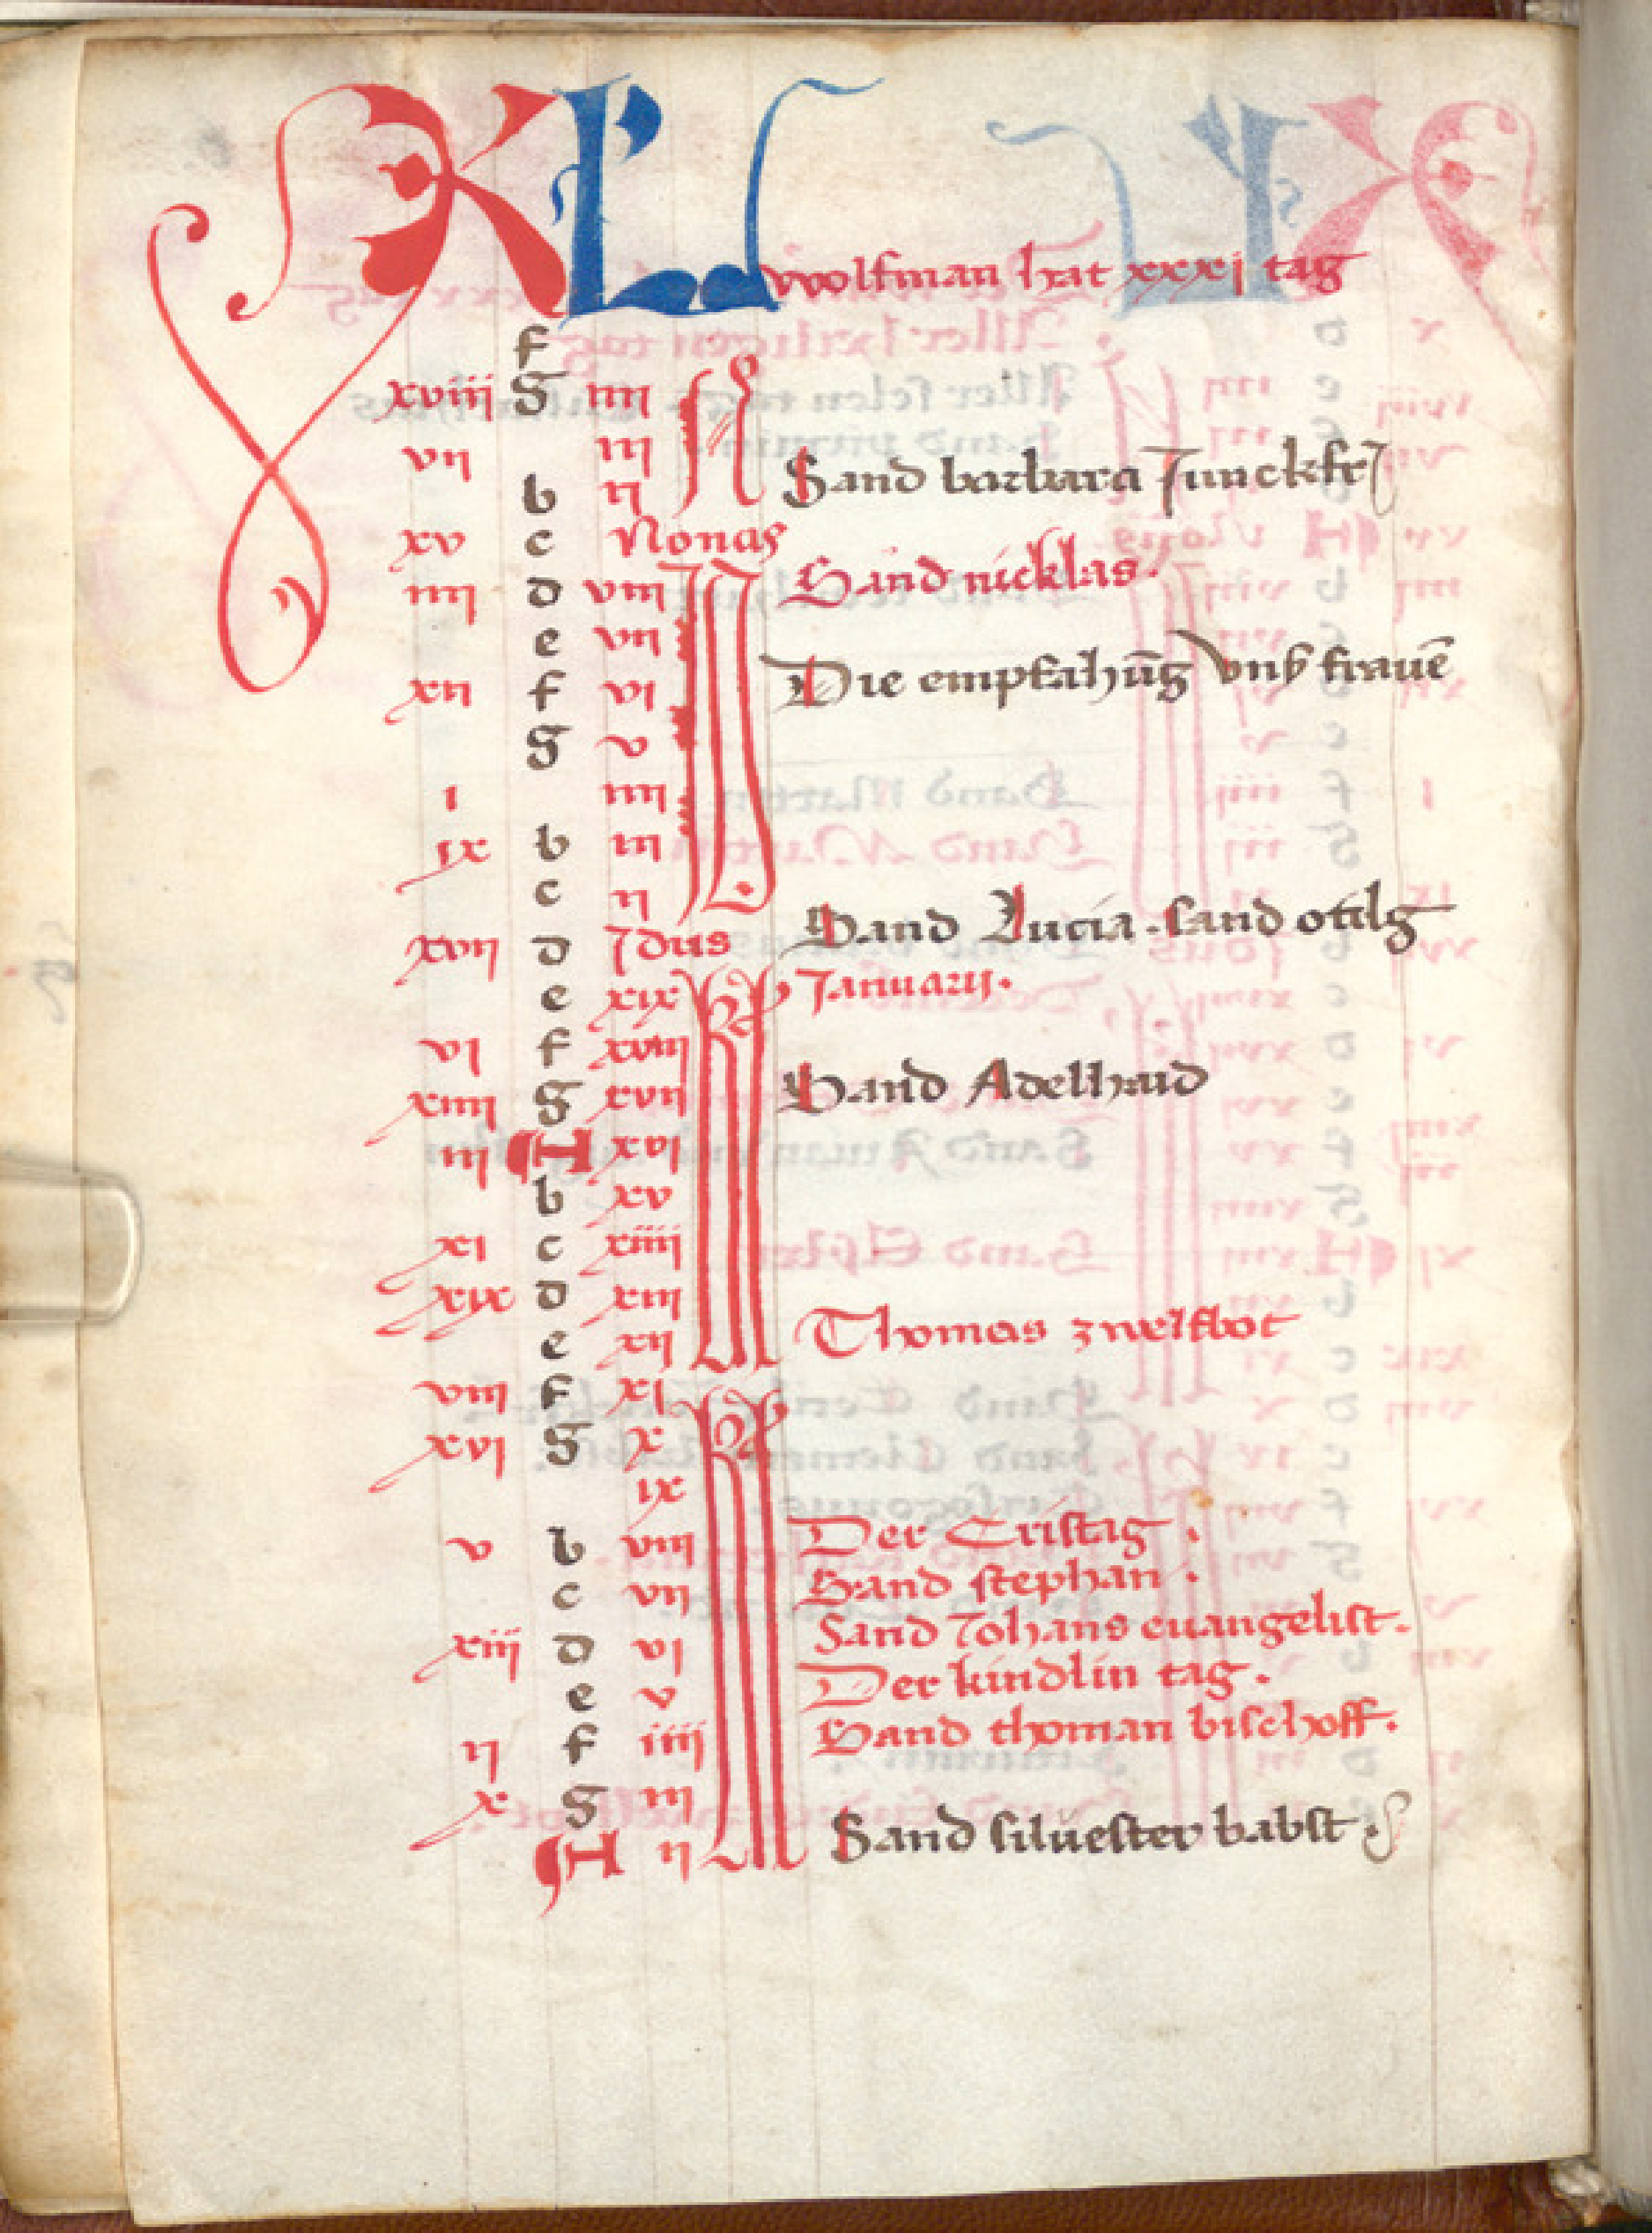 KL wolfman hat xxxj tag
f
xviii g iiii N
vii iii
b ii Sand barbara Junckfr
xv c Nonas
iiii d viii Sand nicklas.
e vii
xii f vi Die empfahūg vnß frauē
g v
i iiii
ix b iii
c ii
xvii d Idus Sand Lucia . sand otilg
e xix Januarij.
vi f xviii
xiiii g xvii Sand Adelhaid
iii A xvi
b xv
xi c xiiii
xix d xiii
e xii Thomas zwelfbot
viii f xi
xvi g x
ix
v b viii Der Cristag .
c vii Sand stephan .
xiii d vi Sand Johans euangelist.
e v Der kindlin tag.
ii f iiii Sand thoman bischoff.
x g iii
A ii Sand siluester babst.